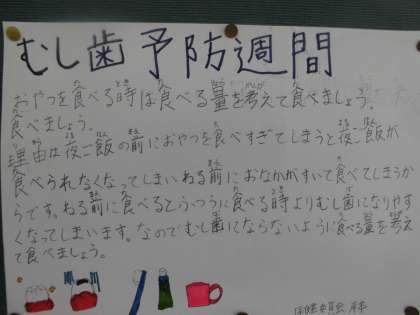 むし歯予防週間
おやつを食べる時は食べる量を考えて食べましょう。
食べましょう。
理由は夜ご飯の前におやつを食べすぎてしまうと夜ご飯が
食べられなくなってしまいねる前におなかがすいて食べてしまうか
らです。ねる前に食べるとふつうに食べる時よりむし歯になりやす
くなってしまいます。なのでむし歯にならないように食べる量を考え
て食べましょう。
保健委員会